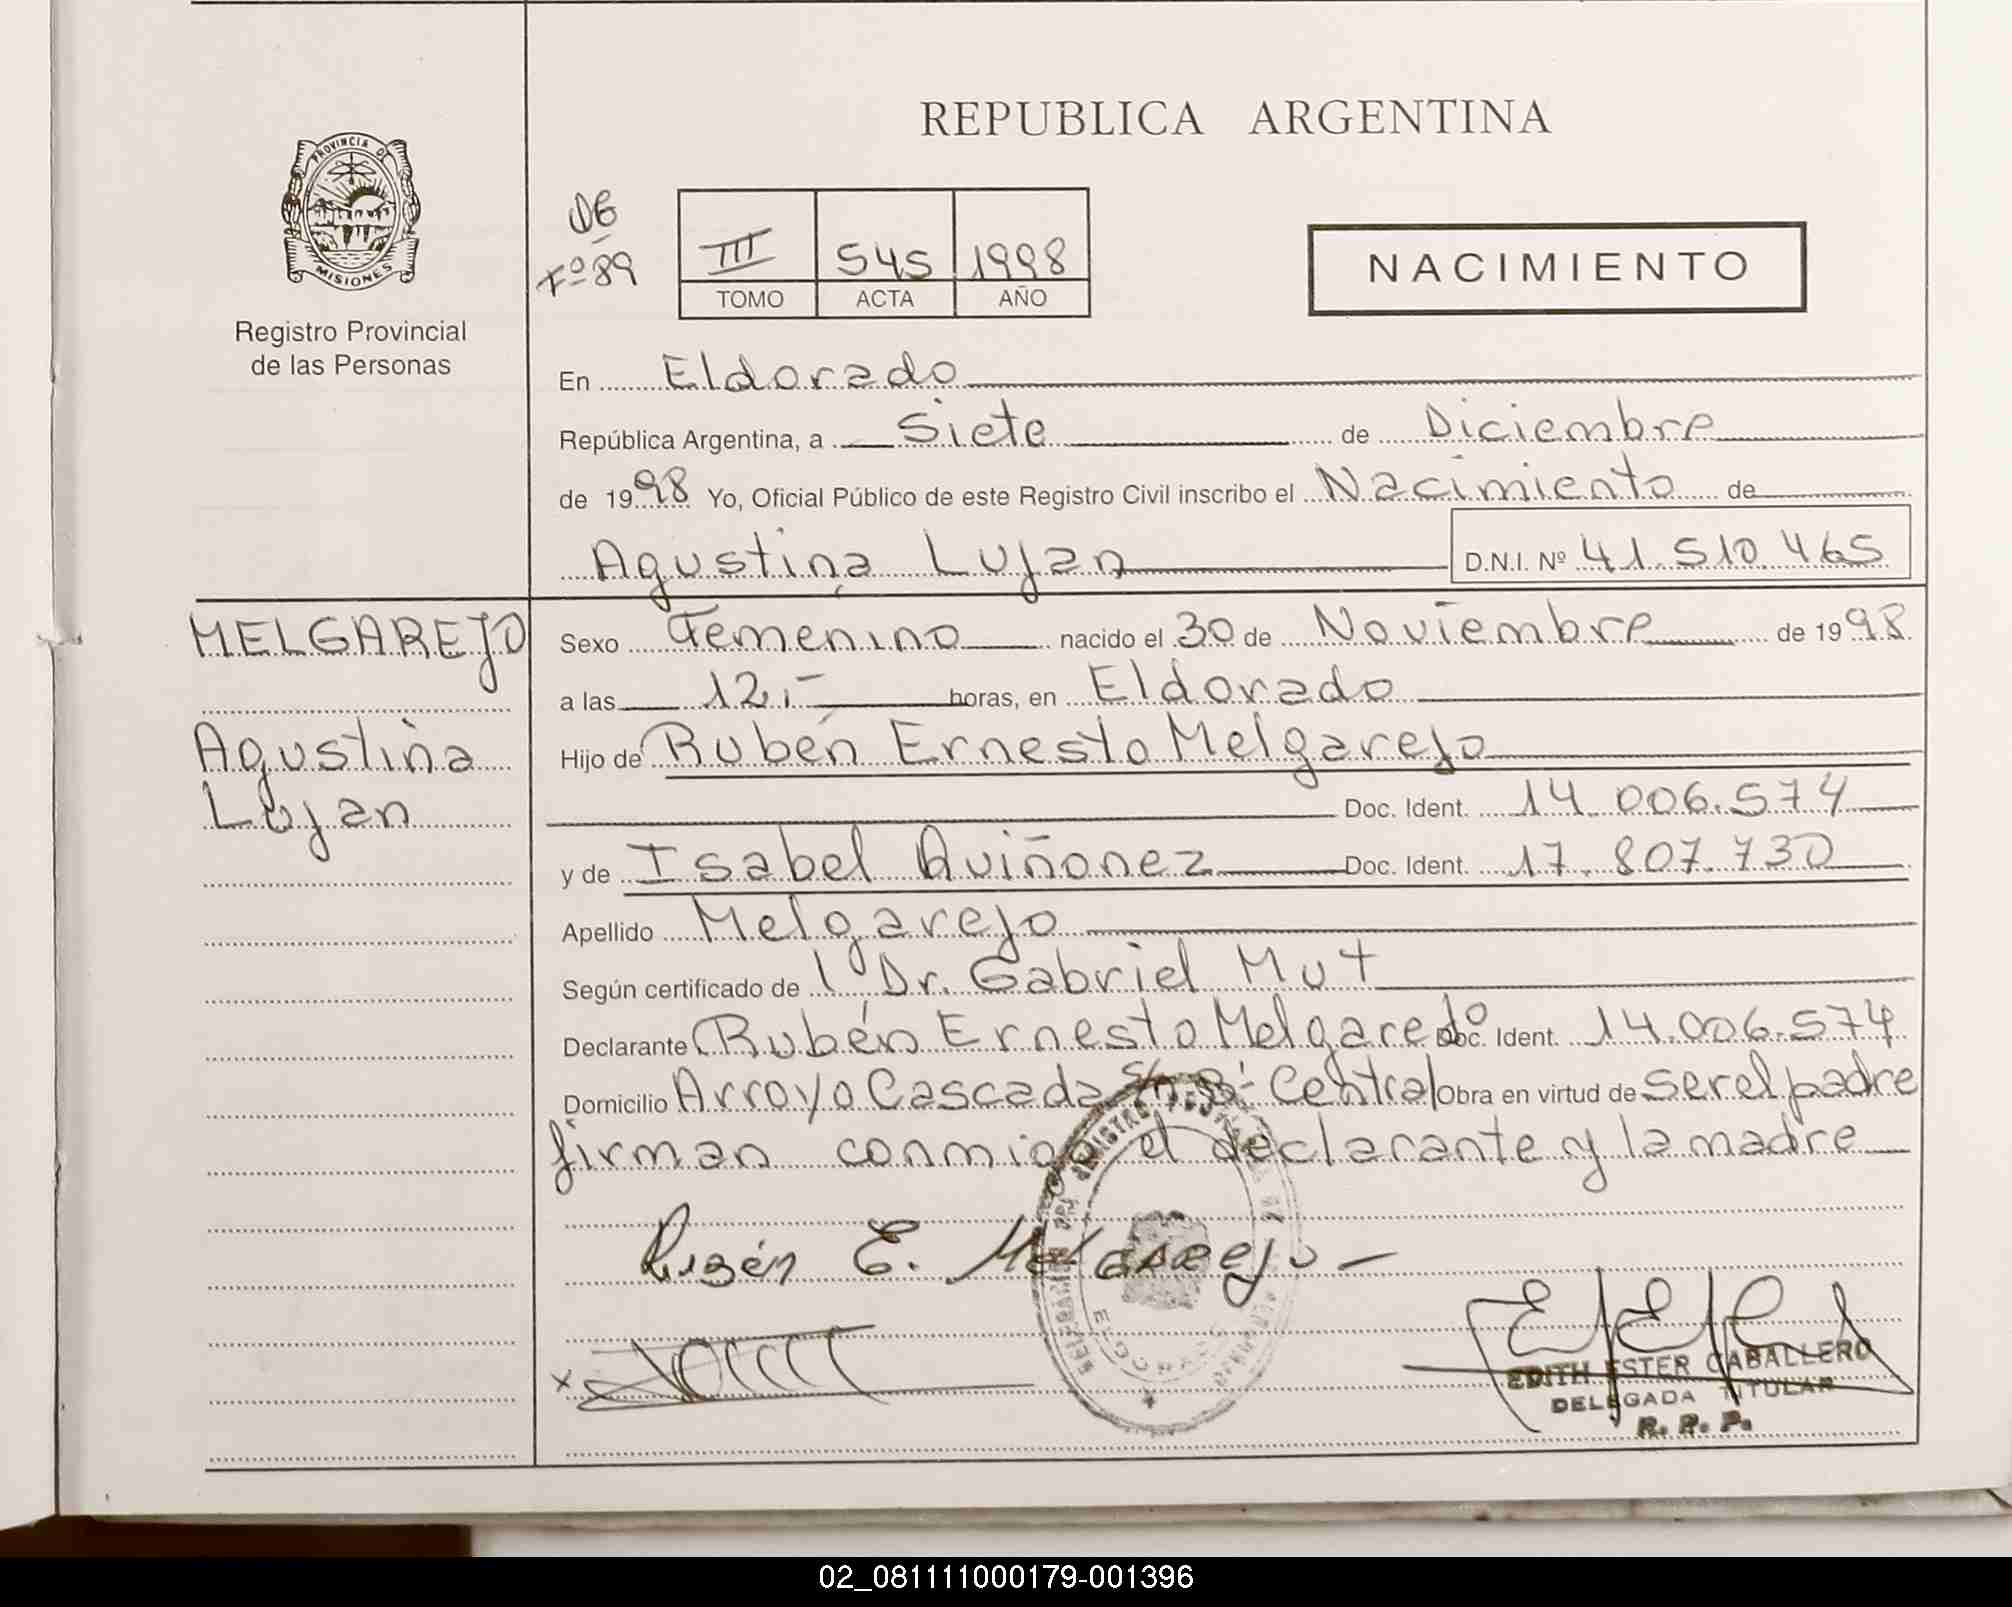 REPUBLICA ARGENTINA
PROVINCIA DE
MISIONES
Registro Provincial
de las Personas
Fº 89
III 545 1998
TOMO ACTA AÑO
NACIMIENTO
En Eldorado
República Argentina, a Siete de Diciembre
de 1998 Yo, Oficial Público de este Registro Civil inscribo el Nacimiento de
Agustina Lujan D.N.I. Nº 41.510.465
MELGAREJO
Agustina
Lujan
Sexo Femenino nacido el 30 de Noviembre de 1998
a las 12,- horas, en Eldorado
Hijo de Rubén Ernesto Melgarejo
Doc. Ident. 14.006.574
y de Isabel Quiñonez Doc. Ident. 17.807.730
Apellido Melgarejo
Según certificado de l Dr. Gabriel Mut
Declarante Rubén Ernesto Melgarejo Doc. Ident. 14.006.574
Domicilio Arroyo Cascada s/n Bº Central Obra en virtud de ser el padre
firman conmigo el declarante y la madre
Rubén E. Melgarejo -
x
EDITH ESTER CABALLERO
DELEGADA TITULAR
R. R. P.
ELDORADO
02_081111000179-001396